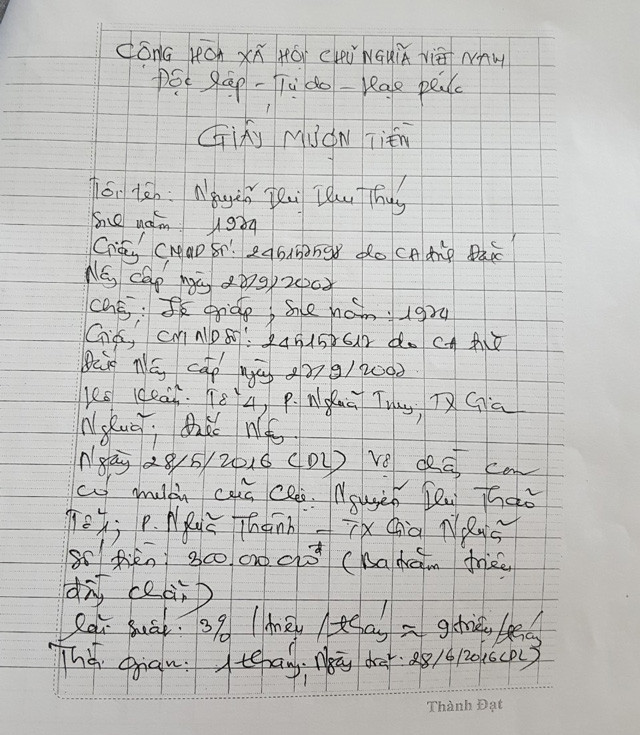 CỘNG HÒA XÃ HỘI CHỦ NGHĨA VIỆT NAM
Độc lập - Tự do - Hạnh phúc
GIẤY MƯỢN TIỀN
Tôi tên: Nguyễn Thị Thu Thủy
Sinh năm: 1974
Giấy CMND Số: 245152598 do CA tỉnh Đắc
Nông cấp ngày 27/9/2002
Chồng: Lê giáp, Sinh năm: 1974
Giấy CMND Số: 245152612 do CA tỉnh
Đắc Nông cấp ngày 27/9/2002
Hộ khẩu: Tổ 4, P. Nghĩa Trung, TX Gia
Nghĩa, Đắc Nông.
Ngày 28/5/2016 (DL) Vợ chồng con
có mượn của Chị: Nguyễn Thị Thảo
P. Nghĩa Thành - TX Gia Nghĩa
Số tiền: 300.000.000đ (Ba trăm triệu
đồng chẵn)
Lãi suất: 3% /triệu /tháng = 9 triệu/tháng
Thời gian: 1 tháng; Ngày trả: 28/6/2016 (DL)
Thành Đạt